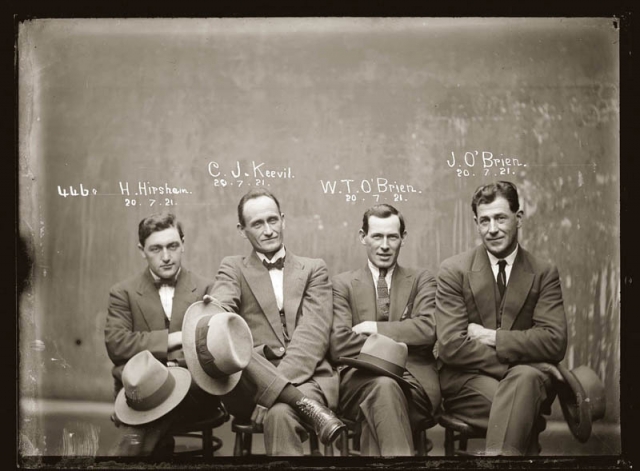 446.
H. Hirsham.
20. 7. 21.
C. J. Keevil.
20. 7. 21.
W.T. O'Brien.
20. 7. 21.
J. O'Brien.
20. 7. 21.